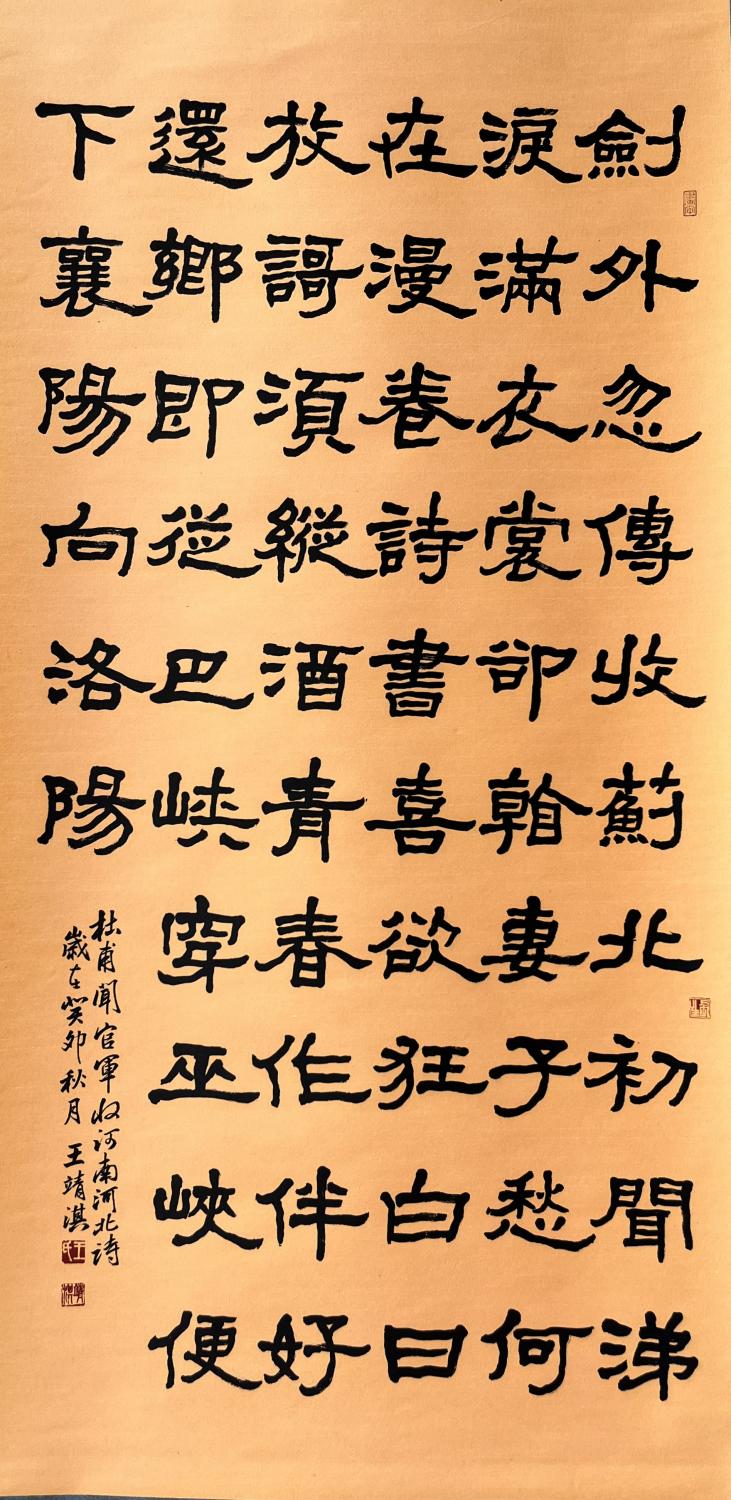 劍外忽傳收薊北初聞涕
淚滿衣裳卻看妻子愁何
在漫卷詩書喜欲狂白日
放謌須縱酒青春作伴好
還鄉即從巴峽穿巫峽便
下襄陽向洛陽
杜甫聞官軍收河南河北詩
歲在癸卯秋月 王靖淇